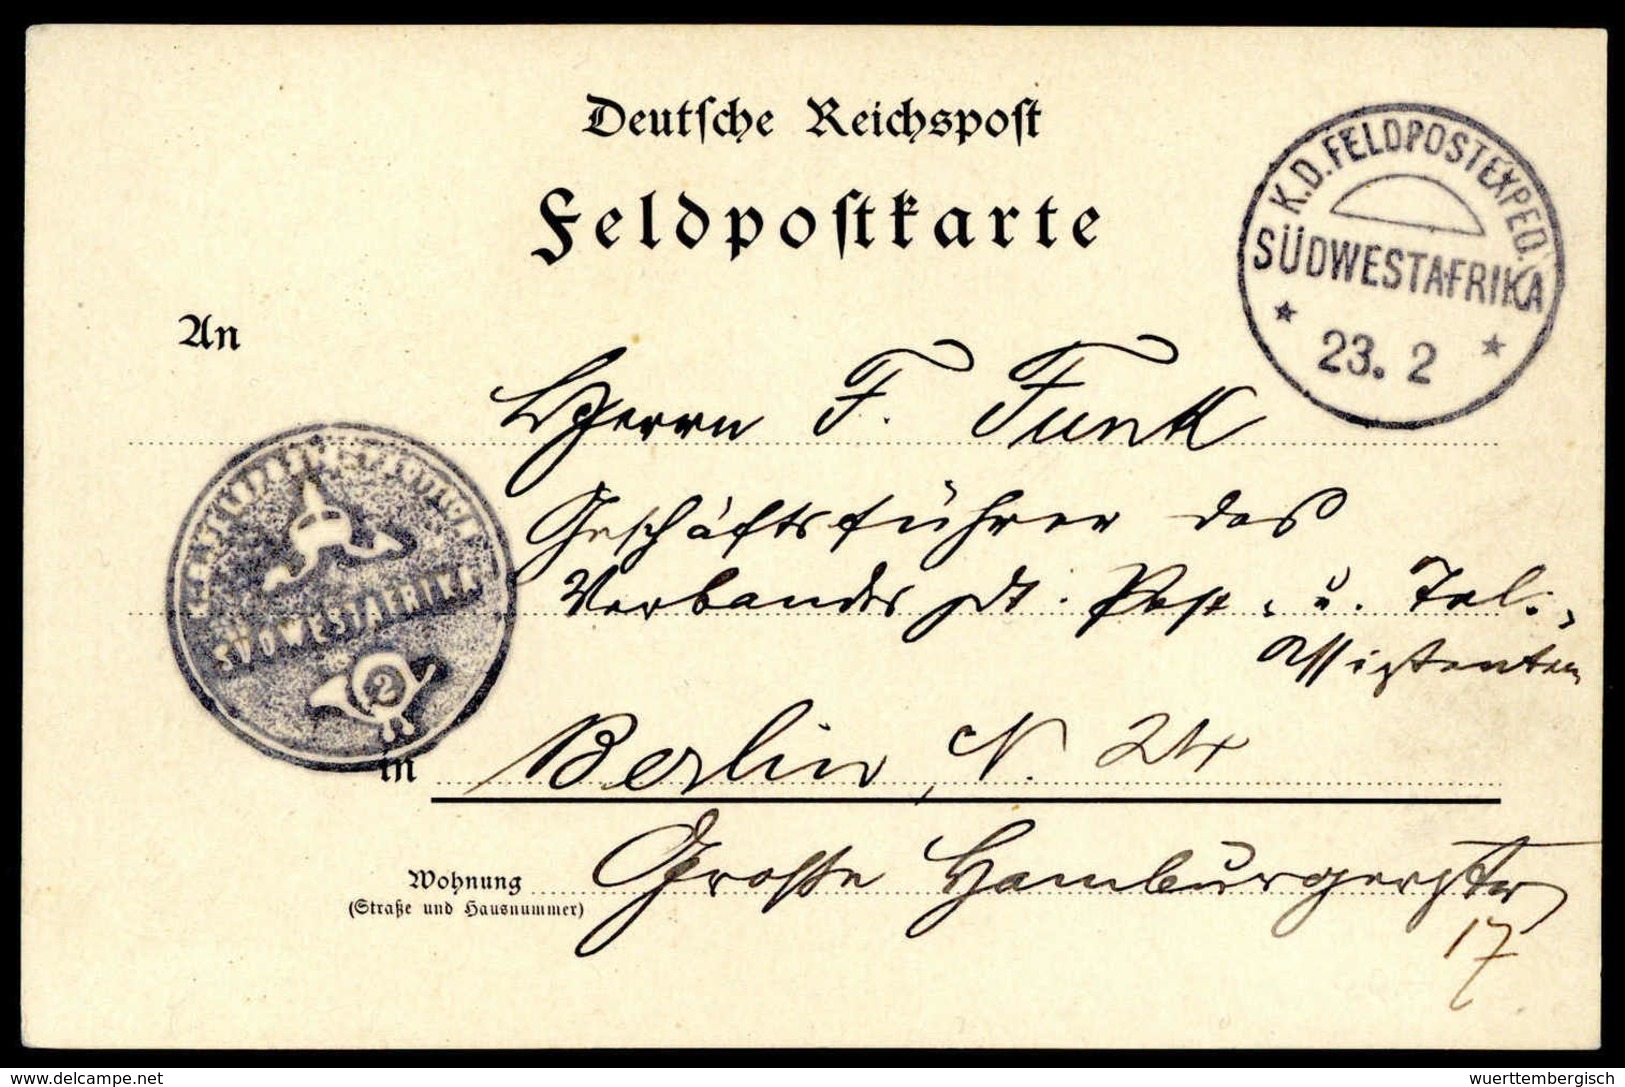 Deutsche Reichspost
Feldpostkarte
K.D. FELDPOSTEXPED.
SÜDWESTAFRIKA
* 23. 2 *
An
Herrn F. Funk
Geschäftsführer des
Verbandes dt. Post- u. Tel.-
Assistenten
SÜDWESTAFRIKA
2
in Berlin, N. 24
Wohnung Große Hamburgerstr
(Straße und Hausnummer)
17
delcampe.net
wuerttembergisch